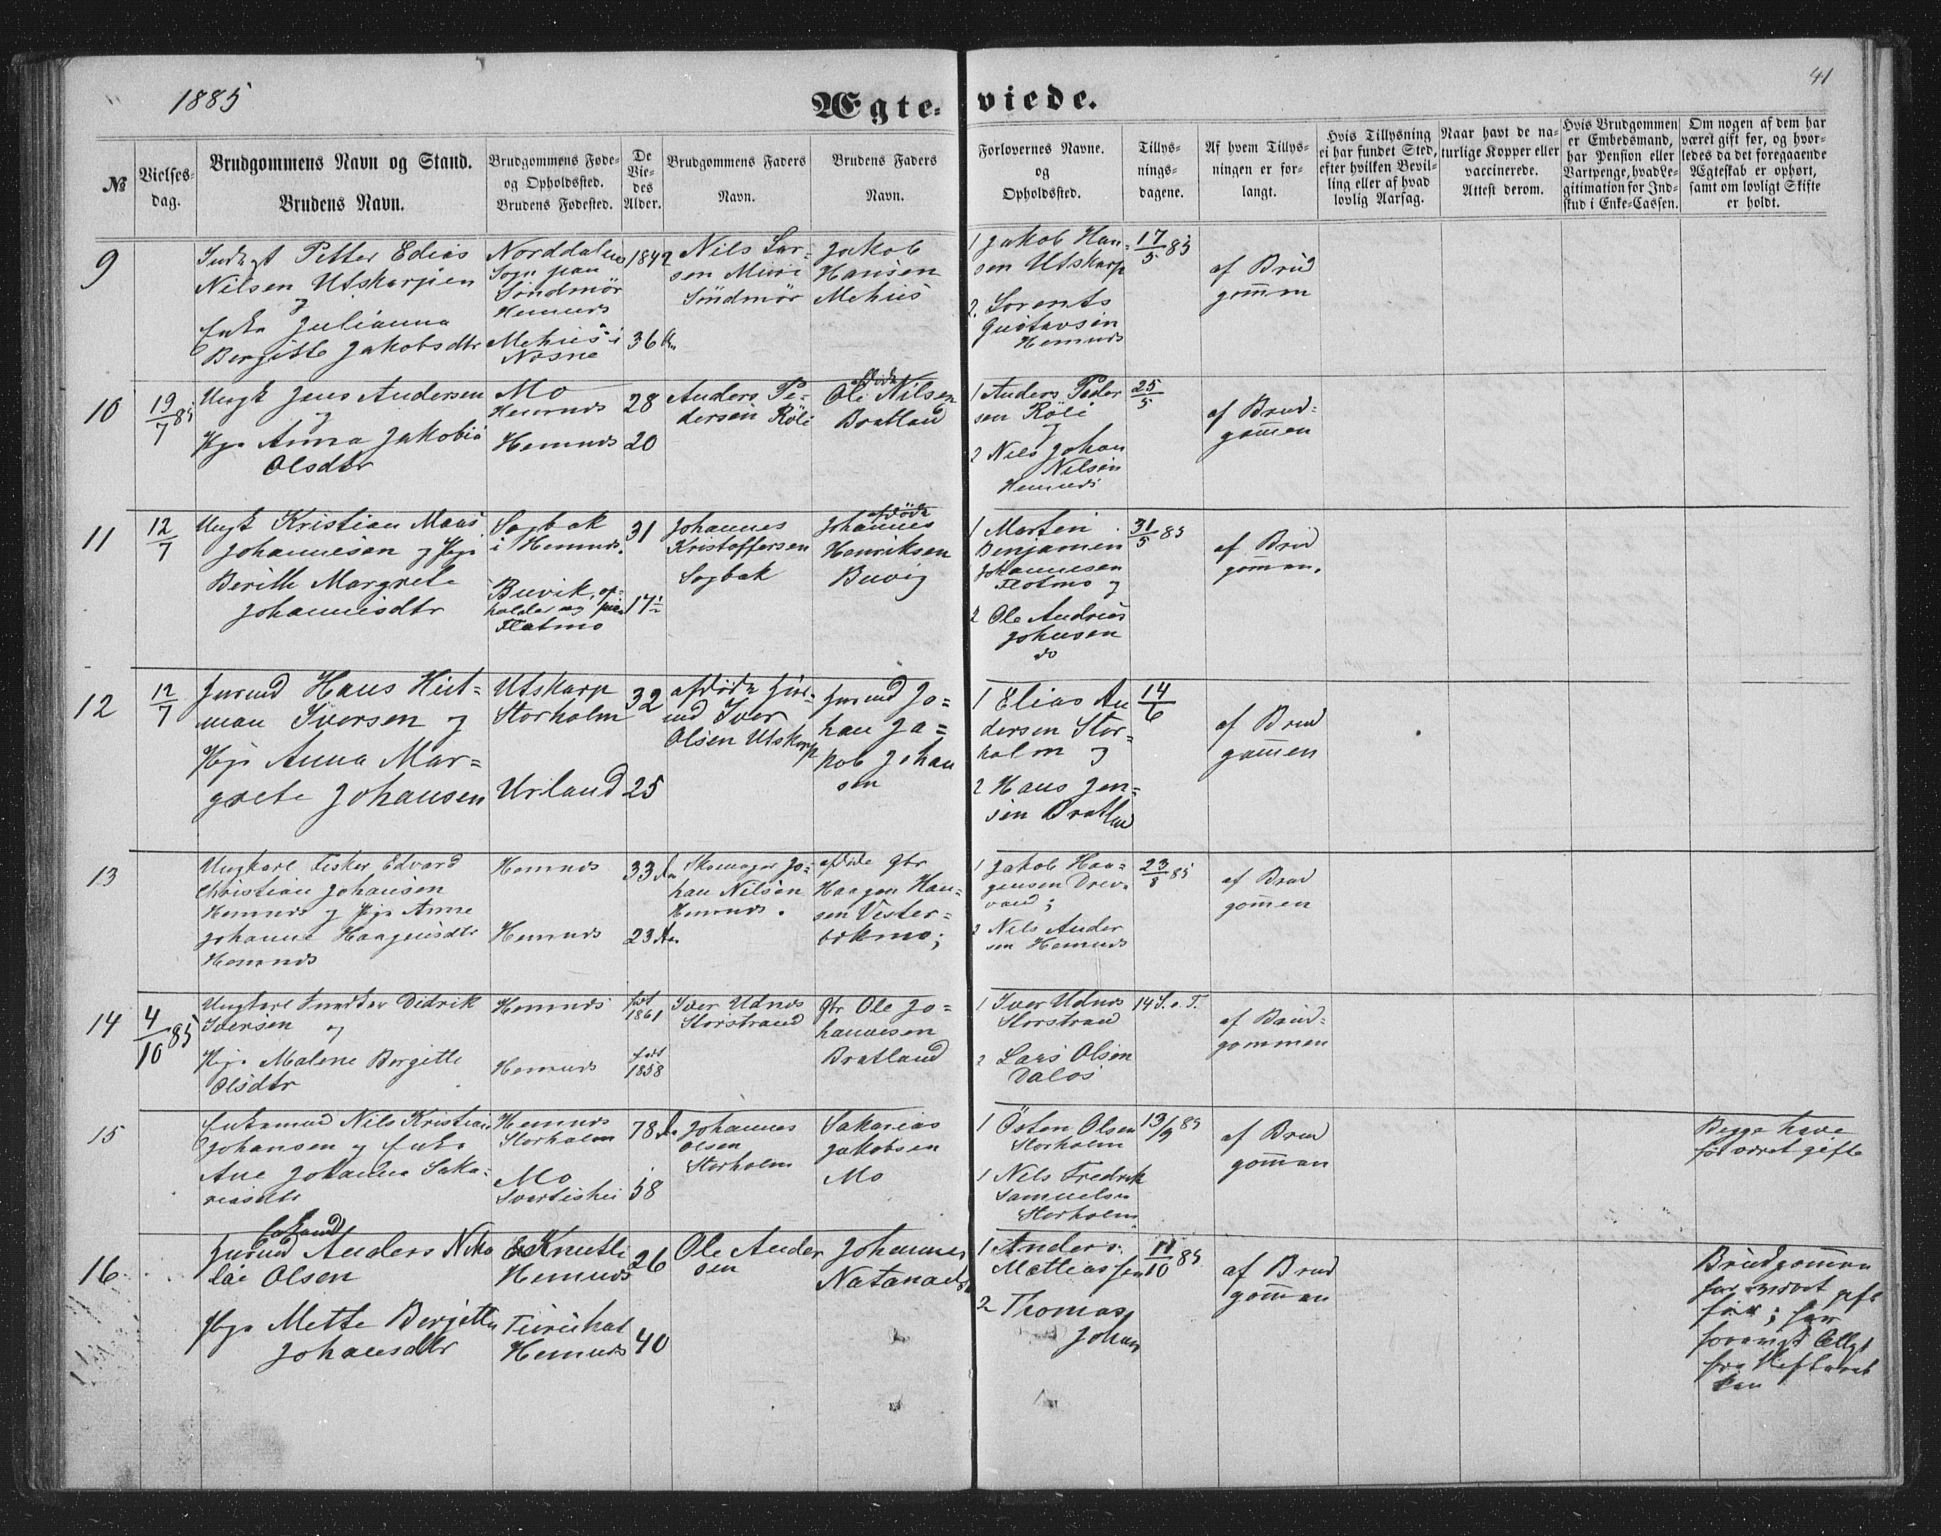 1885
Ægte-viede.
41
№
Vielses-
dag.
Brudgommens Navn og Stand.
Brudens Navn.
Brudgommens Føde-
og Opholdssted.
Brudens Fødested.
De
Vie-
des
Alder.
Brudgommens Faders
Navn.
Brudens Faders
Navn.
Forlovernes Navne.
og
Opholdssted.
Tillys-
nings-
dagene.
Af hvem Tillys-
ningen er for-
langt.
Hvis Tillysning
ei har fundet Sted,
efter hvilken Bevil-
ling eller af hvad
lovlig Aarsag.
Naar havt de na-
turlige Kopper eller
vaccinerede.
Attest derom.
Hvis Brudgommen
er Embedsmand,
har Pension eller
Vartpenge, hvad Le-
gitimation for Ind-
skud i Enke-Cassen.
Om nogen af dem har
været gift før, og hvor-
ledes da det foregaaende
Ægteskab er ophørt,
samt om lovligt Skifte
er holdt.
9
Petter Edias
Nilsen Utskarpen
og
Enke Julianna
Bergitte Jakobsdtr
Norddalens
Sogn paa
Söndmör
Hemnes
Mehus i
Nesne
1842
36
Nils Lar-
sen
Söndmör
Jakob
Hansen
Mehus
1 Jakob Han-
sen Utskarp
2. Lorents
Gustavsen
Hemnes
17/5 85
af Brud
gommen
10
19/7 85
Ungk Jens Andersen
og
Pige Anna Jakobia
Olsdtr
Mo
Hemnes
Hemnes
28
20
Anders Pe-
dersen Röli
afdöde
Ole Nilsen
Bratland
1 Anders Peder
sen Röli
og
2 Nils Johan
Nilsen
Hemnes
25/5
af Brud-
gommen
11
12/7
Ungk Kristian Maas
Johannesen og Pige
Berith Margrete
Johannesdtr
Sagbak
i Hemnes.
Buvik, op-
holder sig paa
Flatmo
31
17½
Johannes
Kristoffersen
Sagbak
afdöde
Johannes
Henriksen
Buvig
1 Martin
Benjamin
Johannesen
Flatmo og
2 Ole Andreas
Johnsen
do
31/5 85
af Brud
gommen.
12
12/7
Inrmd Hans Hart-
man Iversen og
Pige Anna Mar-
grete Johansen
Utskarp
Storholm
Urland
32
25
afdöde
Iver
Olsen Utskarp
Jo-
han Ja-
kob Johan
sen
1 Elias An
dersen Stor-
holm og
2 Hans Jen-
sen Bratland
14/6
af Brud
gommen
13
Ungkarl Fisker Edvard
Christian Johansen
Hemnes og Pige Anne
Johanne Haagensdtr
Hemnes
Hemnes
Hemnes
33 Aar
23 Aar
Skomager Jo-
han Nilsen
Hemnes.
afdöde Gbr
Haagen Han-
sen Vester-
bækmo;
1 Jakob Haa-
gensen Drev-
vand;
2 Nils Ander
sen Hemnes
23/8 85
af Brud
gommen
14
4/10 85
Ungkarl Didrik
Iversen og
Pige Malene Bergitte
Olsdtr
Hemnes
Hemnes
født
1861
født
1858
Iver Udnes
Storstrand
Gbr Ole Jo-
hannesen
Bratland
1 Iver Udnes
Storstrand
2 Lars Olsen
Dalos
14 S. e. T.
af Brud-
gommen
15
Enkemand Nils Kristian
Johansen og Enke
Ane Johanna Saka-
riasdtr
Hemnes
Storholm
Mo
Svartishei
78
58
Johannes
Olsen
Storholm
Sakarias
Jakobsen
Mo
1 Östen Olsen
Storholm
1 Nils Fredrik
Samuelsen
Storholm
13/9 85
af Brud
gomman
Begge have
før været gifte
16
Anders Niko
lai Olsen
Pige Mette Bergitte
Johansdtr
Hemnes
Hemnes
26
40
Ole Ander
sen
Johannes
1 Anders
Mattiassen
2 Thomas
Johan
11/10 85
af Brud
gomman
Brudgommen
har været gift
før; har